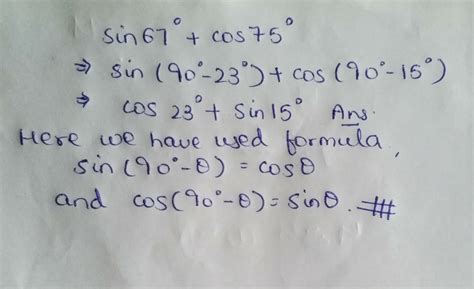 sin67° + cos75°
⇒ sin (90°-23°) + cos (90°-15°)
⇒ cos 23° + sin15° Ans.
Here we have used formula,
sin (90°-θ) = cosθ
and cos(90°-θ) = sinθ.